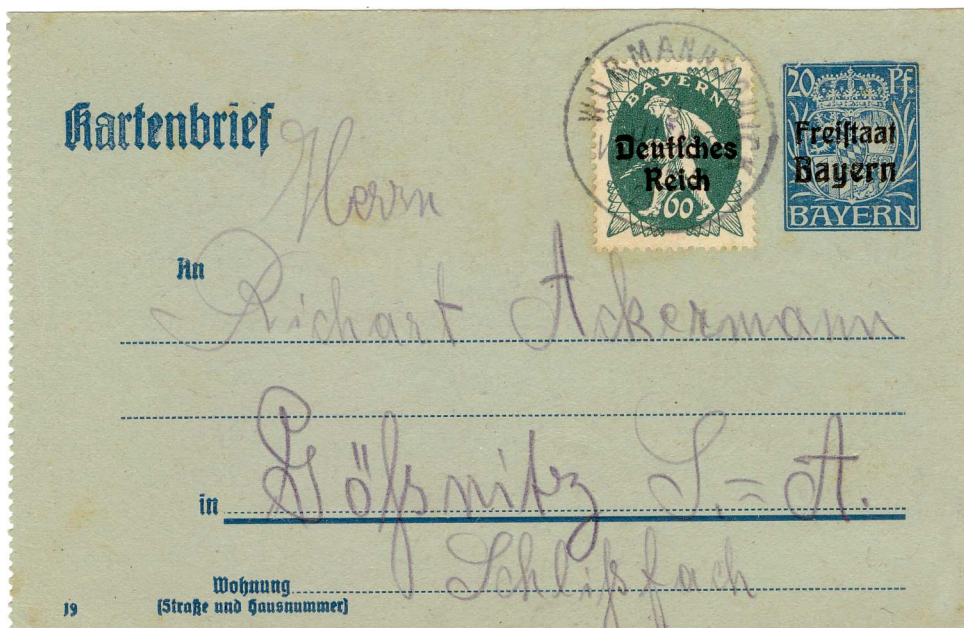 Kartenbrief
WURMANNSQUICK
BAYERN
Deutsches
Reich
60
20 Pf.
Freistaat
Bayern
BAYERN
Herrn
An
Richart Ackermann
in Gößnitz S.=A.
Schlißfach
Wohnung
(Straße und Hausnummer)
19